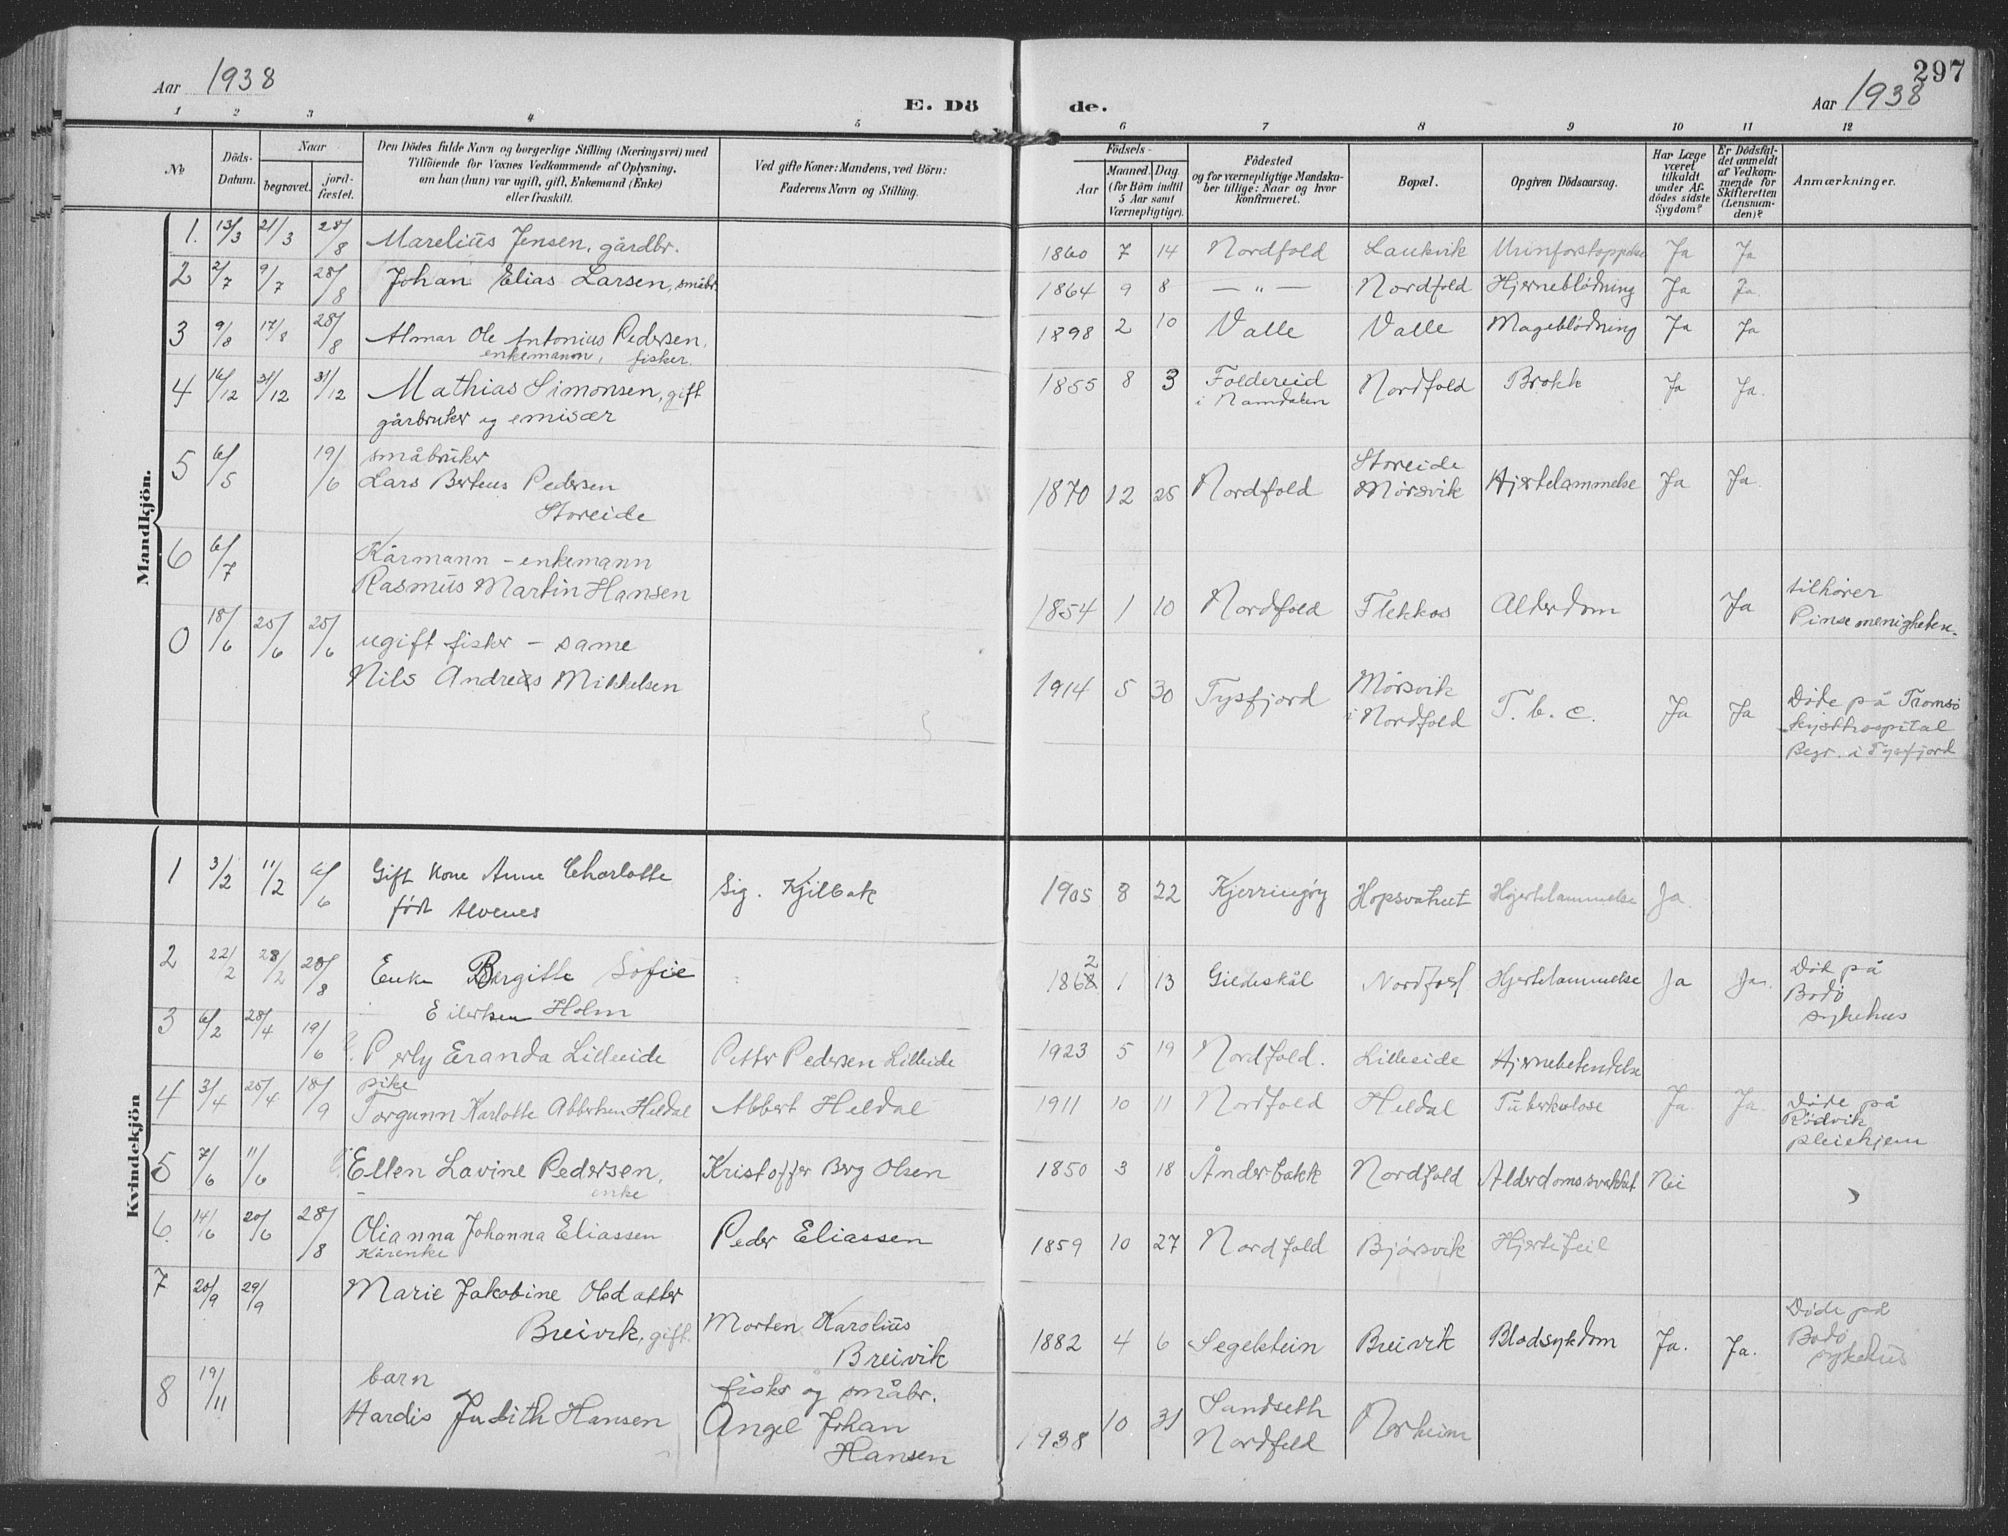 Aar 1938
E. Dö
de.
Aar 1938
297
1 2 3 4 5 6 7 8 9 10 11 12
No
Döds-
Datum.
Naar
begravet.
jord-
fæstet.
Den Dödes fulde Navn og borgerlige Stilling (Næringsvei) med
Tilföiende for Voxnes Vedkommende af Oplysning,
om han (hun) var ugift, gift, Enkemand (Enke)
eller fraskilt.
Ved gifte Koner: Mandens, ved Börn:
Faderens Navn og Stilling.
Födsels-
Aar
Maaned. Dag
(for Börn indtil
5 Aar samt
Værnepligtige).
Födested
og for værnepligtige Mandska-
ber tillige: Naar og hvor
konfirmeret.
Bopæl.
Opgiven Dödsaarsag.
Har Læge
været
tilkaldt
under Af-
dödes sidste
Sygdom?
Er Dödsfal-
det anmeldt
af Vedkom-
mende for
Skifteretten
(Lensman-
den)?
Anmærkninger.
Mandkjön.
1. 13/3 21/3 28/8 Marelius Jensen, gårdbr. 1860 7 14 Nordfold Laukvik Urinforstoppelse Ja Ja
2 2/7 9/7 28/8 Johan Elias Larsen, småbr. 1864 9 8 — " — Nordfold Hjerneblödning Ja Ja
3 9/8 17/8 28/8 Almar Ole Antonius Pedersen, 1898 2 10 Valle Valle Mageblödning Ja Ja
enkemann, fisker.
4 16/12 31/12 31/12 Mathias Simonsen, gift 1855 8 3 Foldereid Nordfold Brokk Ja Ja.
gårbruker og emisær i Namdalen
5 6/5 19/6 småbruker Storeide
Lars Berteus Pedersen 1870 12 25 Nordfold Mørsvik Hjertelammelse Ja Ja.
Storeide
6 6/7 Kårmann – enkemann tilhører
Rasmus Martin Hansen 1854 1 10 Nordfold Flekkos Alderdom Ja Pinsemenigheten.
0 18/6 25/6 25/6 ugift fisker – same Mørsvik Døde på Tromsø
Nils Andreas Mikkelsen 1914 5 30 Tysfjord i Nordfold T. b. c. Ja Ja kysthospital
Begr. i Tysfjord
Kvindekjön
1 3/2 11/2 6/6 Gift Kone Anne Charlotte Sig. Kjilbak 1905 8 22 Kjerringøy Hopsvatnet Hjertelammelse Ja.
født Alvenes
2 22/2 28/2 28/8 Enke Bergitte Sofie 1862 1 13 Gildeskål Nordfold Hjertelammelse Ja Ja. Död på
Eilertsen Holm Bodø
sykehus
3 6/2 28/4 19/6 Perly Eranda Lilleeide Petter Pedersen Lilleeide 1923 5 19 Nordfold. Lilleeide Hjernebetendelse
4 3/4 25/4 18/9 pike
Torgunn Karlotte Albertsen Heldal Albert Heldal 1911 10 11 Nordfold Heldal Tuberkulose Ja. Ja. Døde på
Rødvik
pleiehjem
5 7/6 11/6 Ellen Lavine Pedersen, Kristoffer Berg Olsen 1850 3 18 Ånderbakk Nordfold Alderdomssvekket Nei
enke
6. 14/6 20/6 28/8 Olianna Johanna Eliassen Peder Eliassen 1859 10 27 Nordfold Bjørsvik Hjertefeil
Kårenke
7 20/9 29/9 Marie Jakobine Olsdatter Morten Karolius Døde på
Breivik, gift. Breivik 1882 4 6 Segelstein Breivik Blodsykdom Ja. Ja. Bodø
sykehus
8 19/11 barn fisker og småbr. Sandseth
Hardis Judith Hansen Angel Johan 1938 10 31 Nordfold Norheim
Hansen